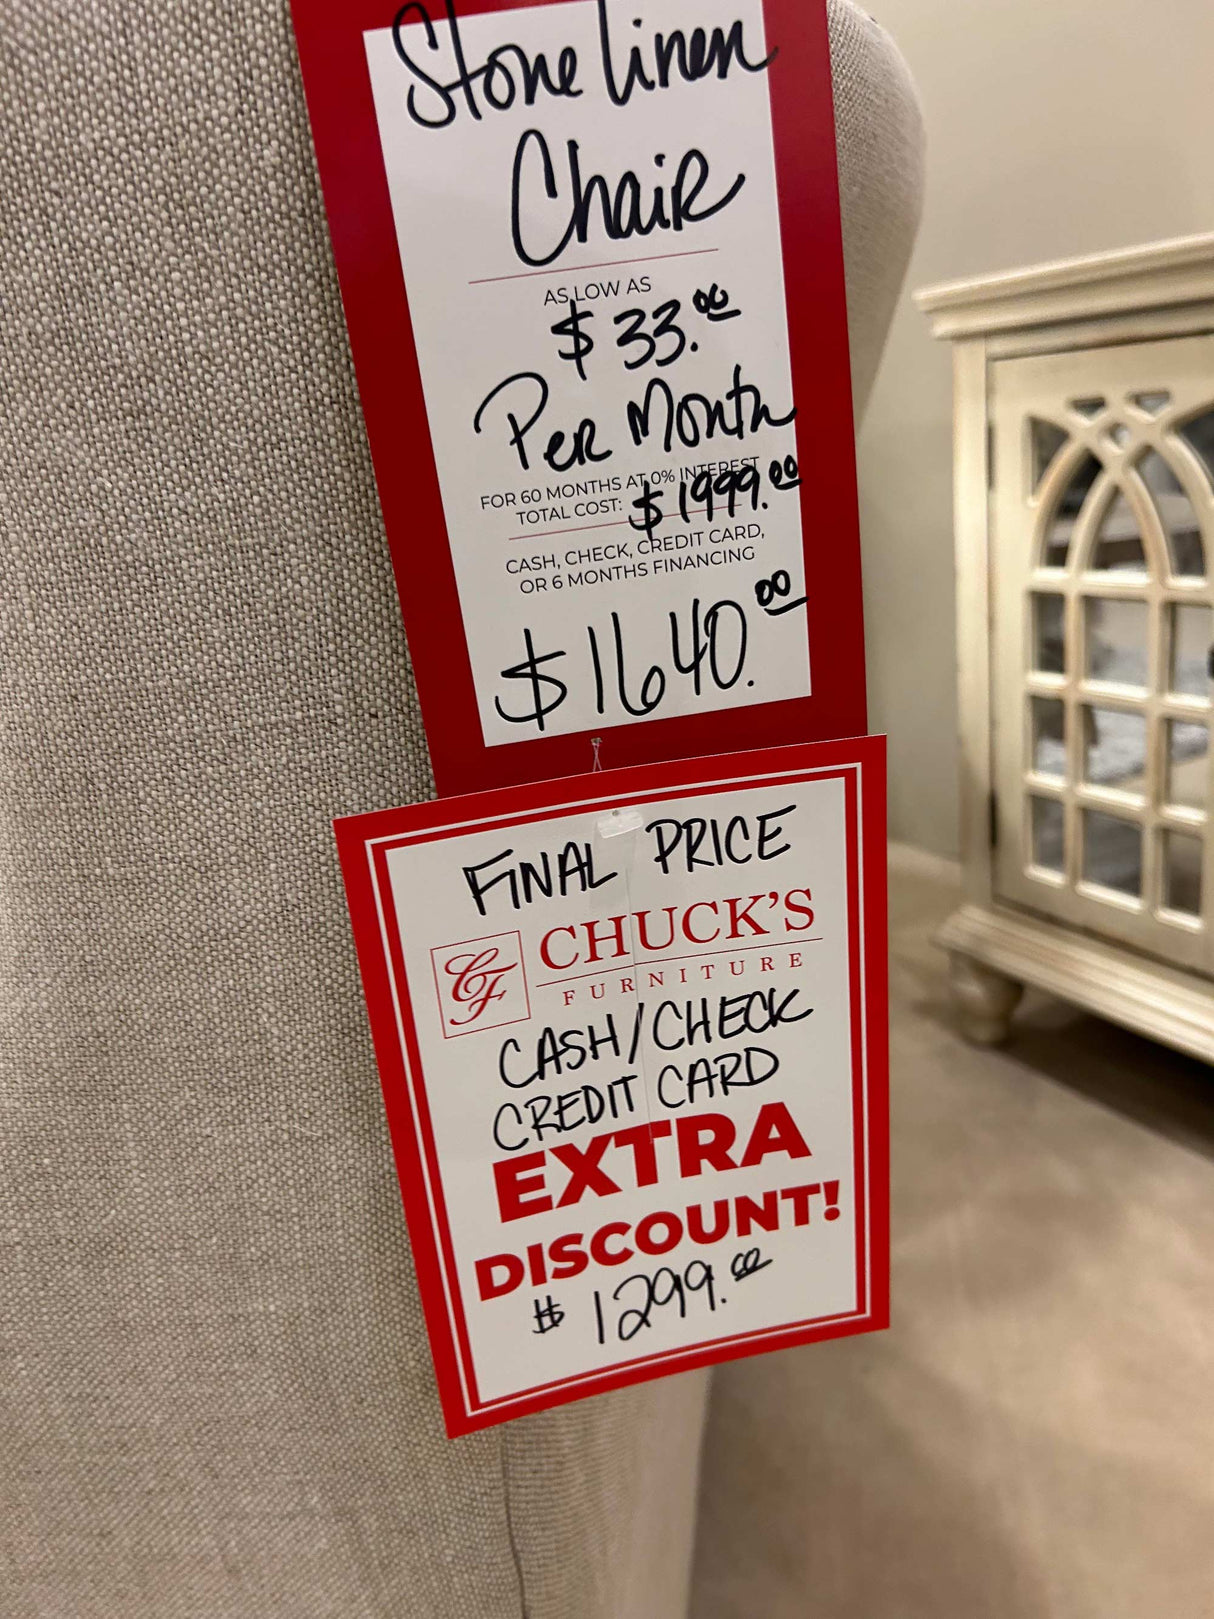 Stone linen
Chair
AS LOW AS
$33.00
Per Month
FOR 60 MONTHS AT 0% INTEREST
TOTAL COST: $1999.00
CASH, CHECK, CREDIT CARD,
OR 6 MONTHS FINANCING
$1640.00
FINAL PRICE
CF CHUCK'S
FURNITURE
CASH/CHECK
CREDIT CARD
EXTRA
DISCOUNT!
$1299.00